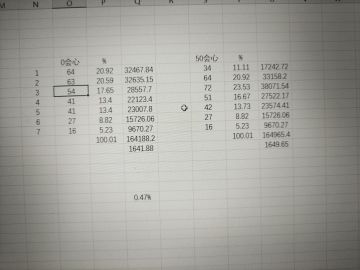 M N O P Q R S
0会心 % 50会心 %
1 64 20.92 32467.84 34 11.11 17242.72
2 63 20.59 32635.15 64 20.92 33158.2
3 54 17.65 28557.7 72 23.53 38071.54
4 41 13.4 22123.4 51 16.67 27522.17
5 41 13.4 23007.8 42 13.73 23574.41
6 27 8.82 15726.06 27 8.82 15726.06
7 16 5.23 9670.27 16 5.23 9670.27
100.01 164188.2 100.01 164965.4
1641.88 1649.65
0.47%